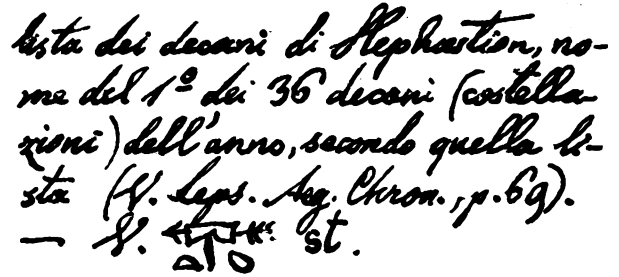 lista dei decani di Hephaestion, no-
me del 1º dei 36 decani (costella-
zioni) dell'anno, secondo quella li-
sta (V. Leps. Aeg. Chron., p. 69).
— V. st.